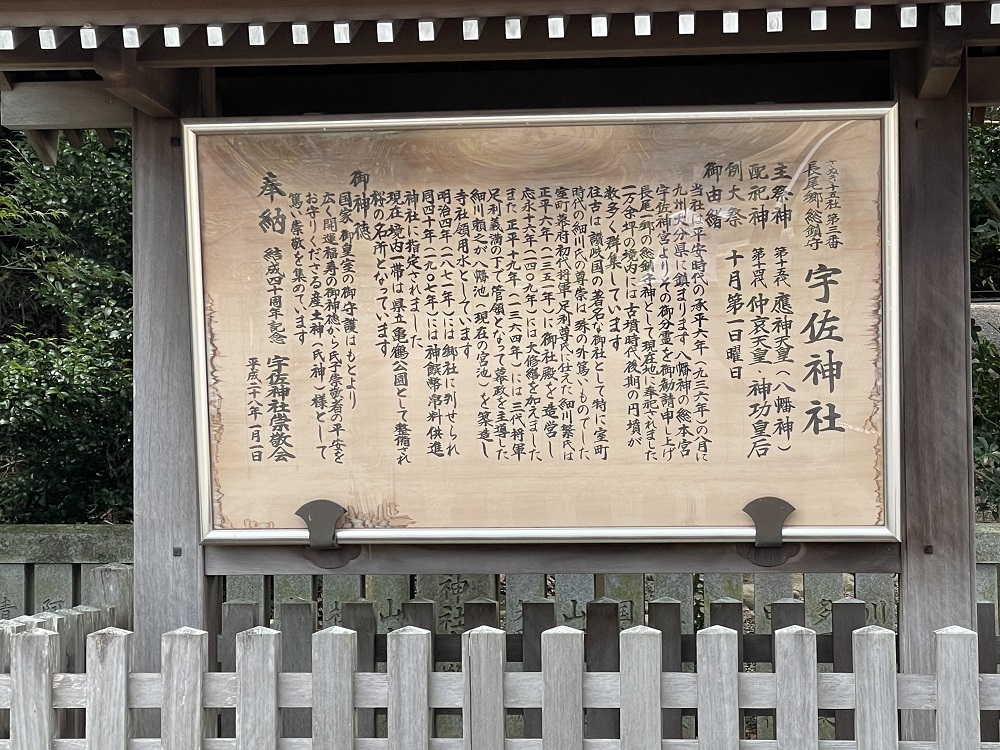 さぬき十五社 第三番
長尾郷 総鎮守
宇佐神社
主祭神 第十五代 應神天皇(八幡神)
配祀神 第十四代 仲哀天皇・神功皇后
例大祭 十月第一日曜日
御由緒
当社は平安時代の承平六年(九三六年)の八月に
九州大分県に鎮まります八幡神の総本宮
宇佐神宮よりその御分霊を御勧請申し上げ
長尾一郷の総鎮守神として現在地に奉祀されました
一万余坪の境内には古墳時代後期の円墳が
数多く群集しています
往古は讃岐国の著名な御社として特に室町
時代の細川氏の尊崇は殊の外篤いものでした
室町幕府初代将軍足利尊氏に仕えた細川繁氏は
正平六年(一三五一年)に御社殿を造営し
応永十六年(一四〇九年)には大修繕を加えました
また正平十九年(一三六四年)には三代将軍
足利義満の下で管領となって幕政を主導した
細川頼之が八幡池(現在の宮池)を築造し
寺社領用水としています
明治四年(一八七一年)には郷社に列せられ
同四十年(一九〇七年)には神饌幣帛料供進
神社に指定されました
現在境内一帯は県立亀鶴公園として整備され
桜の名所となっています
御神徳
国家・御皇室の御守護はもとより
広く開運福寿の御神徳から氏子崇敬者の平安を
お守りくださる産土神(氏神)様として
篤い崇敬を集めています
奉納 結成四十周年記念 宇佐神社崇敬会
平成二十八年一月一日
神社
山
山